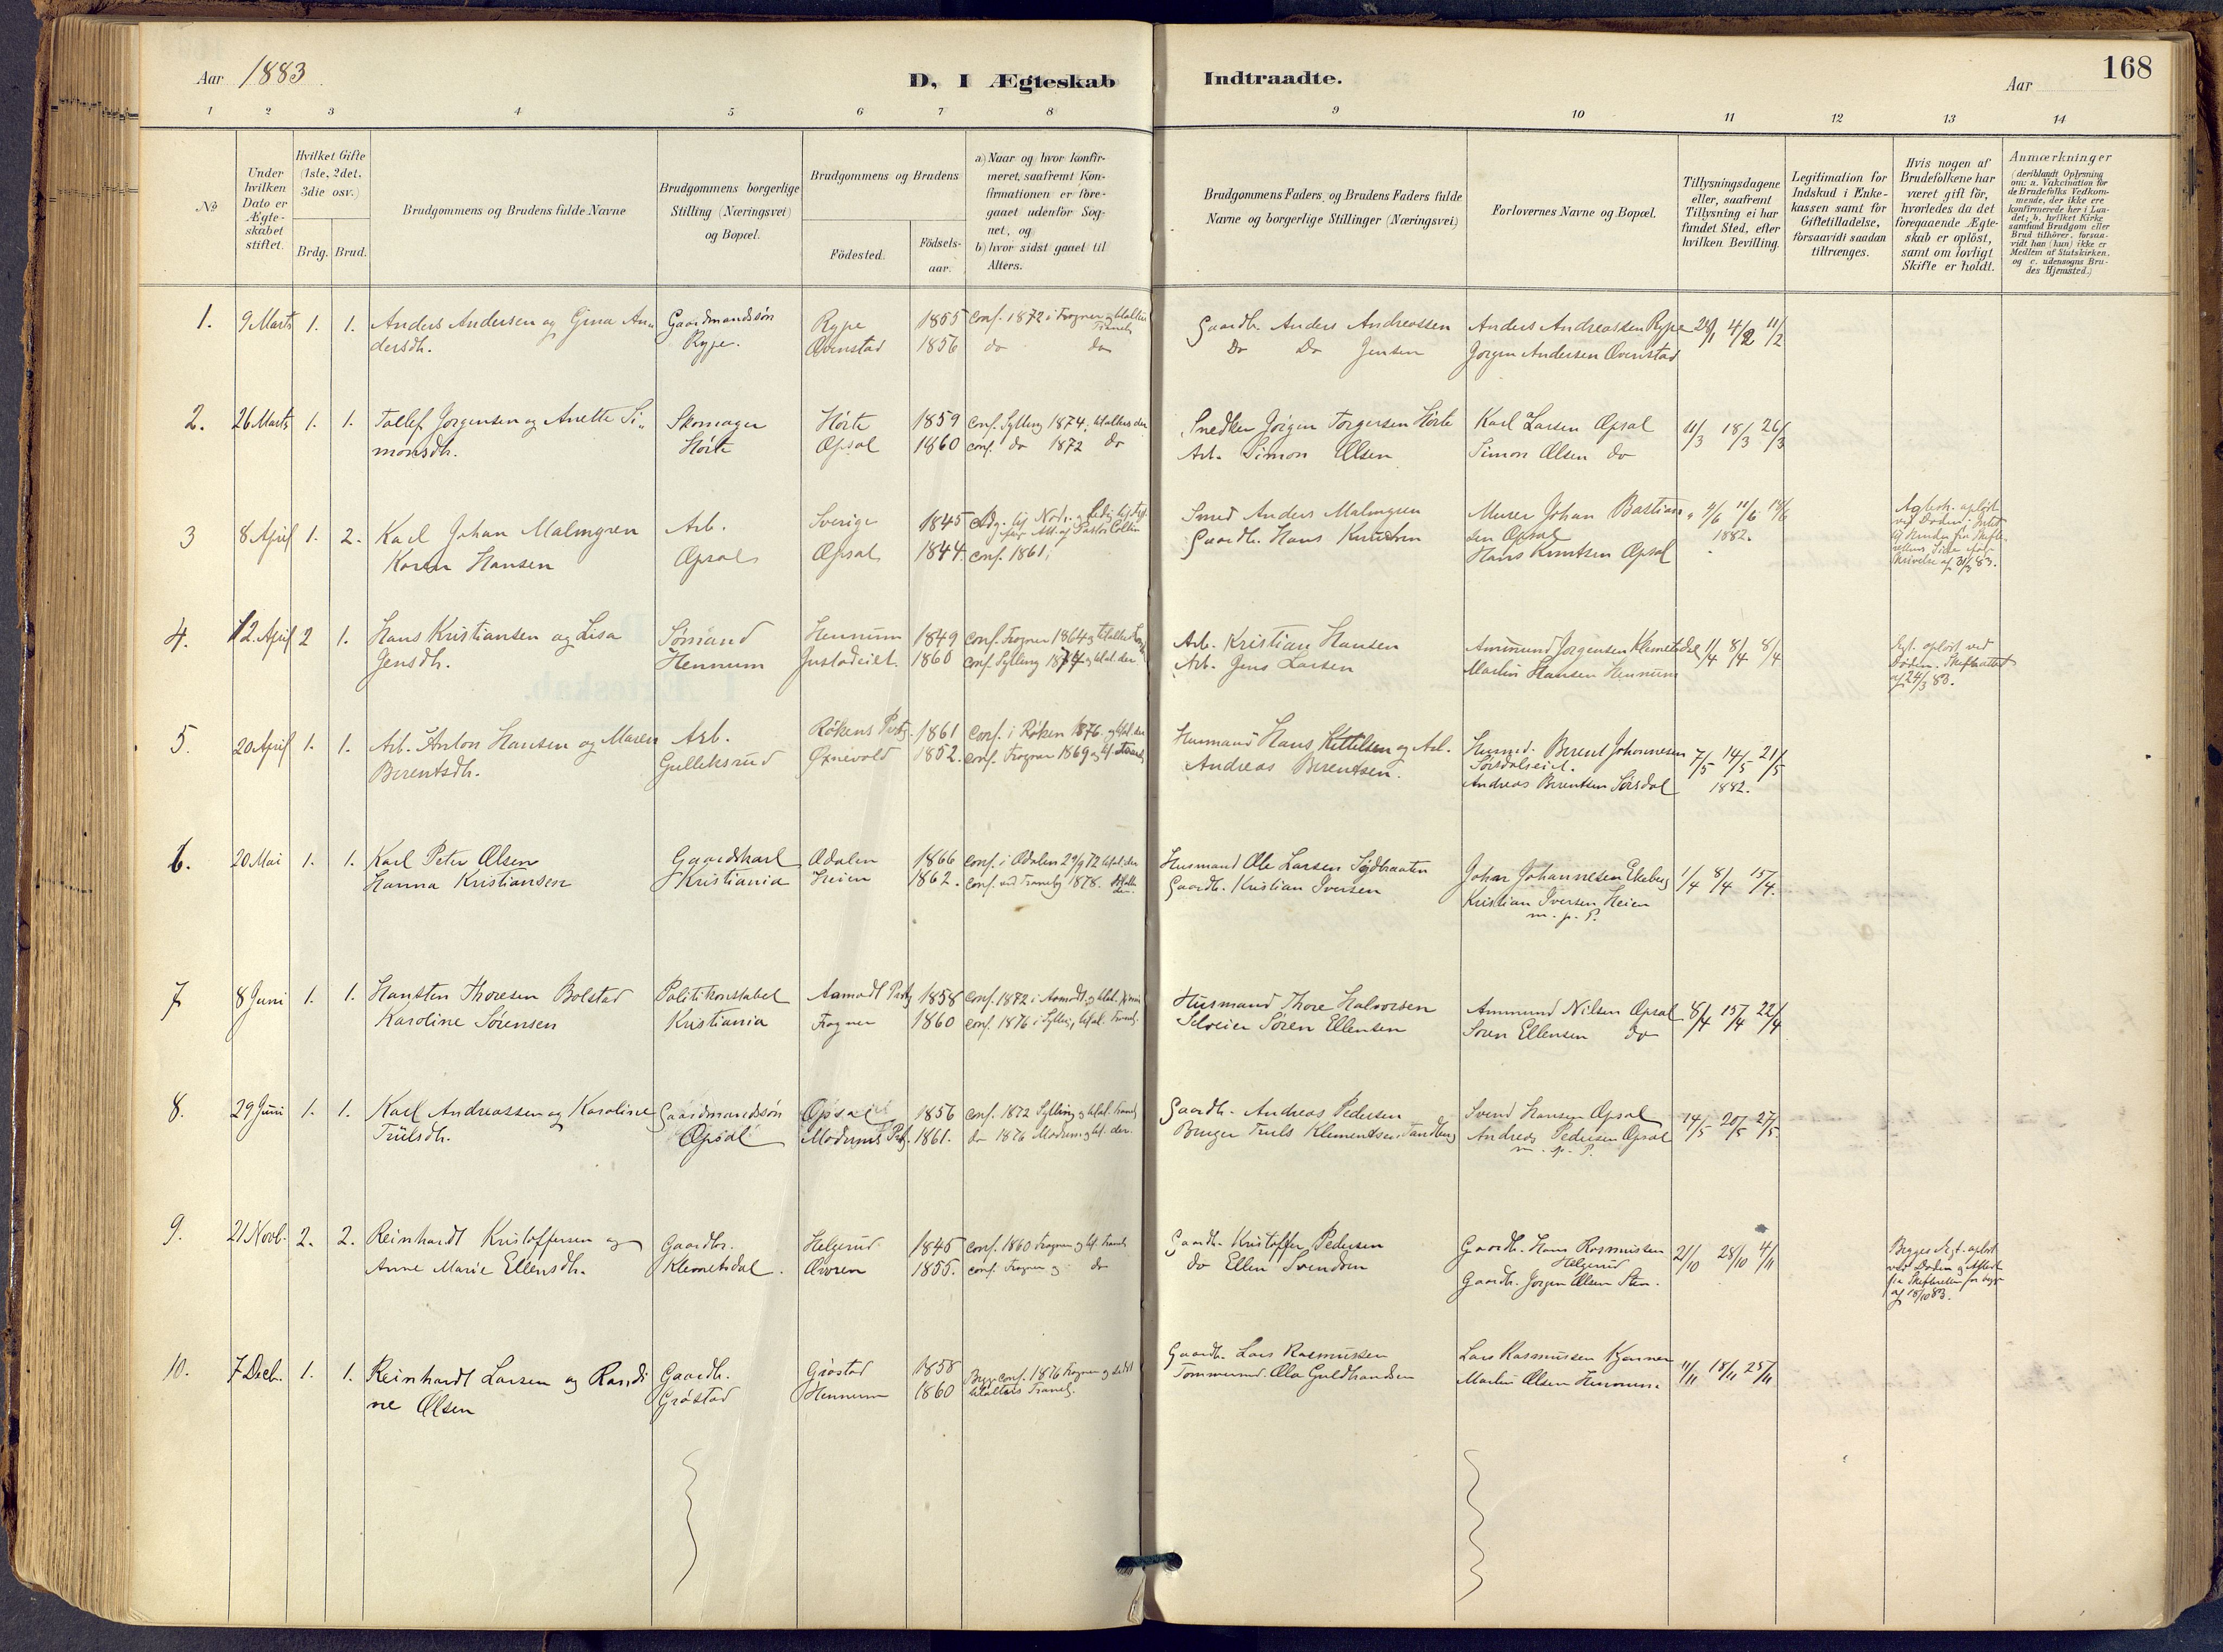 Aar 1883
D, I Ægteskab Indtraadte.
Aar
168
1 2 3 4 5 6 7 8 9 10 11 12 13 14
No
Under hvilken Dato er Ægteskabet stiftet.
Hvilket Gifte (1ste, 2det, 3die osv.)
Brdg. Brud.
Brudgommens og Brudens fulde Navne
Brudgommens borgerlige Stilling (Næringsvei) og Bopæl.
Brudgommens og Brudens
Födested.
Födselsaar.
a) Naar og hvor Konfirmeret, saafremt Konfirmationen er foregaaet udenfor Sognet, og
b) hvor sidst gaaet til Alters.
Brudgommens Faders og Brudens Faders fulde Navne og borgerlige Stillinger (Næringsvei)
Forlovernes Navne og Bopæl.
Tillysningsdagene eller, saafremt Tillysning ei har fundet Sted, efter hvilken Bevilling.
Legitimation for Indskud i Enkekassen samt for Giftetilladelse, forsaavidt saadan tiltrænges.
Hvis nogen af Brudefolkene har været gift för, hvorledes da det foregaaende Ægteskab er oplöst, samt om lovligt Skifte er holdt.
Anmærkninger (deriblandt Oplysning om: a. Vakcination for de Brudefolks Vedkommende, der ikke ere konfirmerede her i Landet; b. hvilket Kirkesamfund Brudgom eller Brud tilhörer, forsaavidt han (hun) ikke er Medlem af Statskirken, og c. udensogns Brudes Hjemsted.)
1. 9 Marts 1. 1. Anders Andersen og Gina An„ Gaardmandssön Rype 1855 Conf. 1872 i Frogner Gaardb. Anders Andreassen Anders Andreassen Rype 28/1 4/2 11/2
dersdh. Rype. Ovenstad 1856 do do Do Do Jensen Jörgen Andersen Ovenstad
2. 26 Marts 1. 1. Tollef Jorgensen og Anette Si„ Skomager Hörte 1859 Conf. Sylling 1874. Snedker Jörgen Torgersen Hörte Karl Larsen Opsal 11/3 18/3 26/3
monsdh. Hörte Opsal 1860 conf. do 1872 do Arb. Simon Olsen Simon Olsen do
3 8 April 1. 2. Karl Johan Malmgren Arb. Sverige 1845 Smed Anders Malmgren Murer Johan Bastian„ 4/6 11/6 18/6
Karen Hansen Opsal Opsal 1844. conf. 1861. Gaardb. Hans Knudsen sen Opsal 1882.
Hans Knutsen Opsal
4. 12. April 2 1. Hans Kristiansen og Lisa Sömand Hennum 1849 Conf. Frogner 1864 Arb. Kristian Hansen Ammund Jorgensen Klemetsdal 1/4 8/4 8/4
Jensdh. Hennum Justadeiet. 1860 Conf. Sylling 1874 Arb. Jens Larsen Martin Hansen Hennum
Ægt. oplöst ved Döden. Skifteattest af 24/3 83.
5. 20 April 1. 1. Arb. Anton Hansen og Maren Arb. Rökens Prstg. 1861 Conf. i Röken 1876. Husmand Hans Kittelsen og Arb. Husmd. Berent Johannesen 7/5 14/5 21/5
Berentsdh. Gulleksrud Öxnevold 1852. Conf. Frogner 1869 Andreas Berentsen. Sörsdalseiet. 1882.
Andreas Berentsen Sörsdal
6. 20 Mai 1. 1. Karl Peter Olsen Gaardskarl Ödalen 1866 Conf. i Ödalen 29/9 72 Husmand Ole Larsen Johan Johannesen Ekeberg 1/4 8/4 15/4.
Hanna Kristiansen Kristiania Heien 1862. Conf. ved Tranby 1878. Gaardb. Kristian Iversen Kristian Iversen Heien
m. p. P.
7 8 Juni 1. 1. Hansten Thoresen Bolstad Politikonstabel Aamodt Prstg 1858 Conf. 1872 i Aamodt Husmand Thore Halvorsen Ammund Nilsen Opsal 8/4 15/4 22/4
Karoline Sörensen Kristiania Frogner 1860 conf. 1876 i Sylling Selveier Sören Ellensen Soren Ellensen do
8. 29 Juni 1. 1. Karl Andreassen og Karoline Gaardmandssön Opsal 1856 Conf. 1872 Sylling Gaardb. Andreas Pedersen Svend Hansen Opsal 14/5 20/5 27/5
Trulsdh. Opsal Modums Prstg. 1861. do 1876 Modum Bruger Truls Klementsen Tandberg Andreas Pedersen Opsal
m. p. P.
9. 21 Novb. 2. 2. Reinhardt Kristoffersen og Gaardbr. Helgerud 1845 Conf. 1860 Frogner Gaardb. Kristoffer Pedersen Gaardb. Hans Rasmussen 21/10 28/10 4/11
Anne Marie Ellensdh. Klemetsdal. Overen 1855. conf. Frogner og do do Ellen Svendsen Helgerud
Gaardb. Jorgen Olsen Sten.
10. 7 Decb. 1. 1. Reinhardt Larsen og Randi Gaardb. Gröstad 1858 Conf. 1876 Frogner og sidst Gaardb. Lars Rasmussen Lars Rasmussen Kjenner 11/11 18/11 25/11
ne Olsen Gröstad Hennum 1860 Tranby. Tommermd. Ole Guldbrandsen Martin Olsen Hennum.